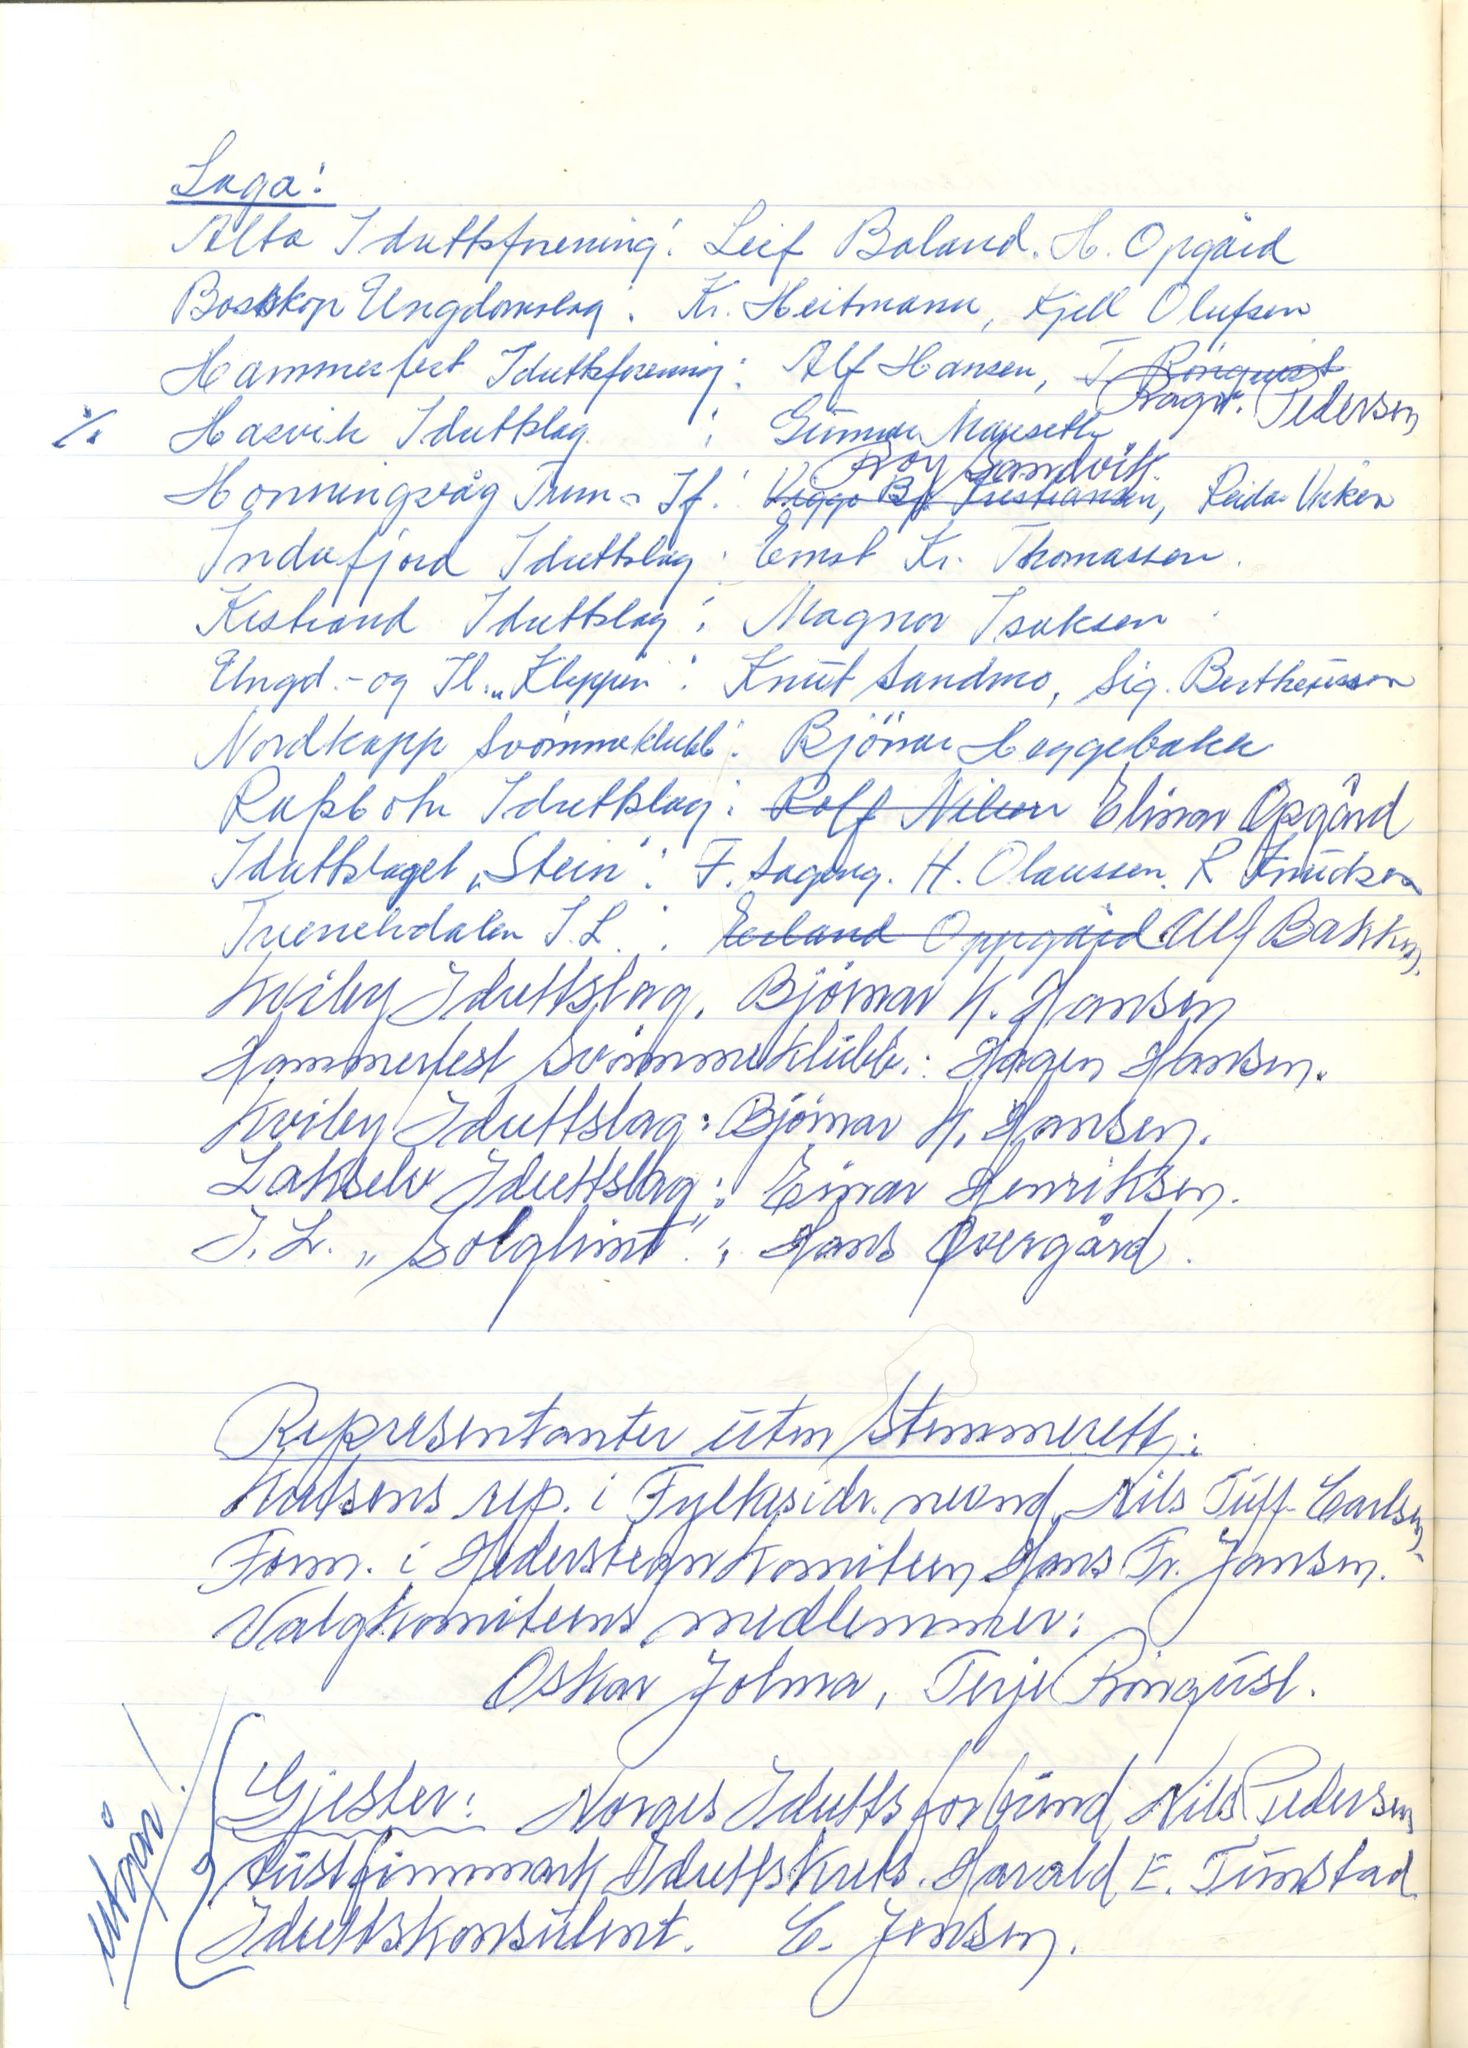 Laga:
Alta Idrettsforening: Leif Boland. H. Opgård
Bossekop Ungdomslag: Kr. Heitmann, Kjell Olufsen
Hammerfest Idrettsforening: Alf Hansen, T. Rönquist
Ragn. Pedersen
Hasvik Idrettslag : Gunnar Mauseth
Roy Sandvik
Honningsvåg Turn- If: Viggo Bj. Kristiansen, Reidar Vicken
Indrefjord Idrettslag: Ernst Kr. Thomassen.
Kistrand Idrettslag: Magnor Isaksen
Ungd.- og Il. „Kleppen": Knut Sandmo, Sig. Bertheussen
Nordkapp Svömmeklubb: Björnar Heggebakk
Rafsbotn Idrettslag: Rolf Nilsen Elinar Opgård
Idrettslaget „Stein": F. Sageng. H. Olaussen. R Knudsen
Tverrelvdalen I.L.: Erland Oppgård Ulf Bakken.
Kviby Idrettslag. Björnar H. Hansen
Hammerfest Svömmeklubb: Hagen Hansen.
Kviby Idrettslag: Björnar H. Hansen.
Lakselv Idrettslag: Einar Henriksen.
I.L. „Solglimt": Hans Overgård.
Representanter uten stemmerett:
Kretsens rep. i Fylkesidr. nevnd, Nils Tuff-Carlsen
Form. i Hederstegnkomiteen Hans Fr. Jansen.
Valgkomiteens medlemmer:
Oskar Jolma, Terje Rönquist.
utgår!
Gjester: Norges Idrettsforbund, Nils Pedersen
Austfinnmark Idrettskrets. Harald E. Tunstad
Idrettskonsulent. E. Jensen.